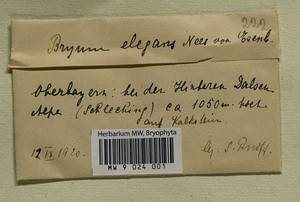 222
Bryum elegans Nees von Esenb.
Oberbayern: bei der Hinteren Dalsen
Alpe (Schleching) ca 1050 m. hoch
auf Kalkstein.
12 IX 1920.
Herbarium MW, Bryophyta
MW 9 024 001
lg.